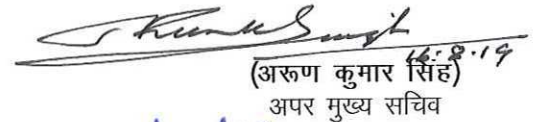 16.8.19
(अरूण कुमार सिंह)
अपर मुख्य सचिव